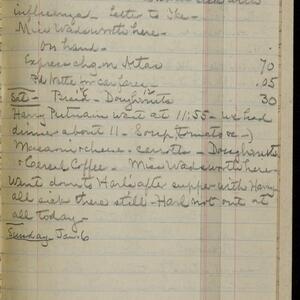 influenza - Letter to Ike -
Miss Wadsworth here -
on hand -
Express chg on 70
Pd Nette for carfare .05
Sat - Pd - Doughnuts 12 30
Harry Putnam went at 11:55 - we had
dinner about 11 - Soup (tomatoe -)
Macaroni & cheese - carrots - Doughnuts
& Cereal Coffee - Miss Wadsworth here -
Went down to Harl's after supper - with Harry
all sick there still - Harl not out at
all today -
Sunday - Jan. 6